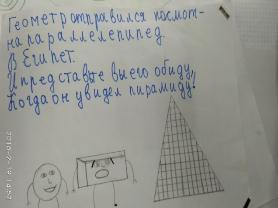 Геометр отправился посмот-
на параллелепипед
В Египет.
И представьте вы его обиду,
Когда он увидел пирамиду!